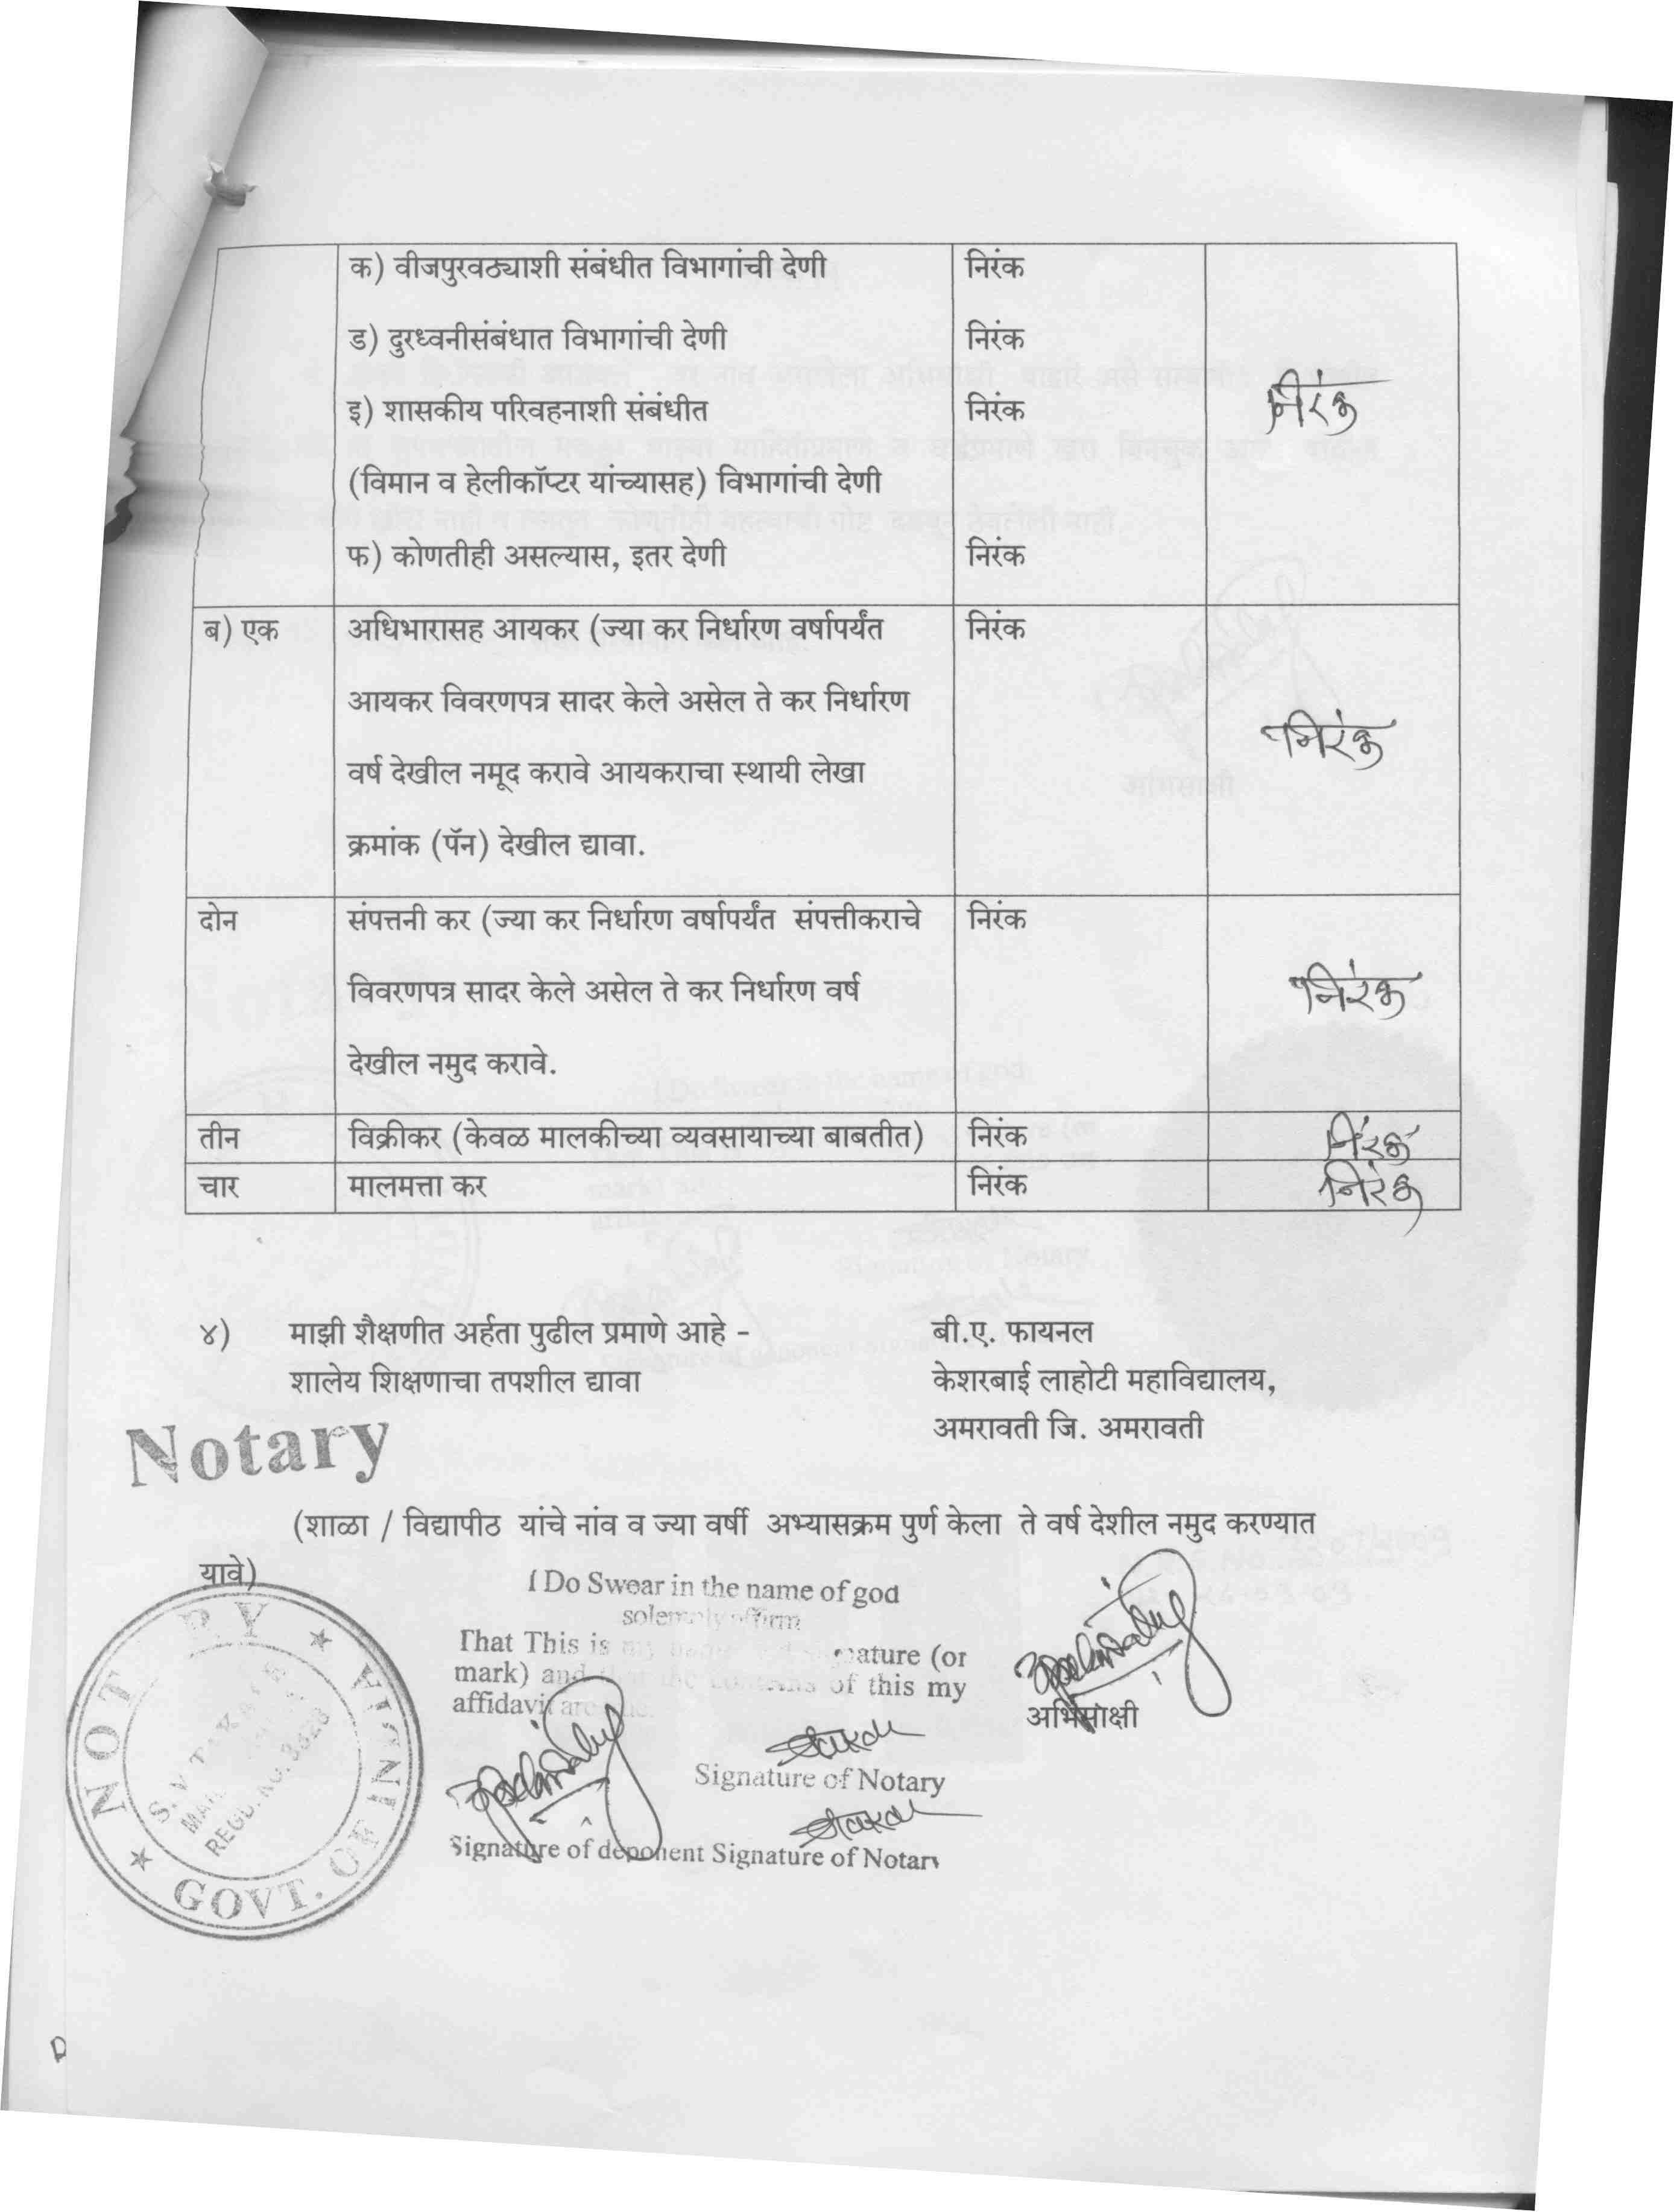 क) वीजपुरवठ्याशी संबंधीत विभागांची देणी निरंक
ड) दुरध्वनीसंबंधात विभागांची देणी निरंक
इ) शासकीय परिवहनाशी संबंधीत निरंक निरंक
(विमान व हेलीकॉप्टर यांच्यासह) विभागांची देणी
फ) कोणतीही असल्यास, इतर देणी निरंक
ब) एक अधिभारासह आयकर (ज्या कर निर्धारण वर्षापर्यंत निरंक
आयकर विवरणपत्र सादर केले असेल ते कर निर्धारण निरंक
वर्ष देखील नमूद करावे आयकराचा स्थायी लेखा
क्रमांक (पॅन) देखील द्यावा.
दोन संपत्तनी कर (ज्या कर निर्धारण वर्षापर्यंत संपत्तीकराचे निरंक
विवरणपत्र सादर केले असेल ते कर निर्धारण वर्ष निरंक
देखील नमुद करावे.
तीन विक्रीकर (केवळ मालकीच्या व्यवसायाच्या बाबतीत) निरंक निरंक
चार मालमत्ता कर निरंक निरंक
४) माझी शैक्षणीत अर्हता पुढील प्रमाणे आहे - बी.ए. फायनल
शालेय शिक्षणाचा तपशील द्यावा केशरबाई लाहोटी महाविद्यालय,
अमरावती जि. अमरावती
Notary
(शाळा / विद्यापीठ यांचे नांव व ज्या वर्षी अभ्यासक्रम पुर्ण केला ते वर्ष देशील नमुद करण्यात
यावे)
I Do Swear in the name of god
solemnly affirm
That This is my signature (or
mark) and that the contents of this my
affidavit are
अभिसाक्षी
Signature of Notary
Signature of deponent Signature of Notary
NOTARY
GOVT. OF
REGD. NO. 3628